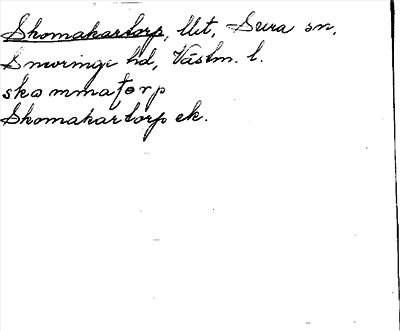 Skomakartorp, Ut, Sura sn,
Snevringe hd, Västm. l.
skommatorp
Skomakartorp ek.